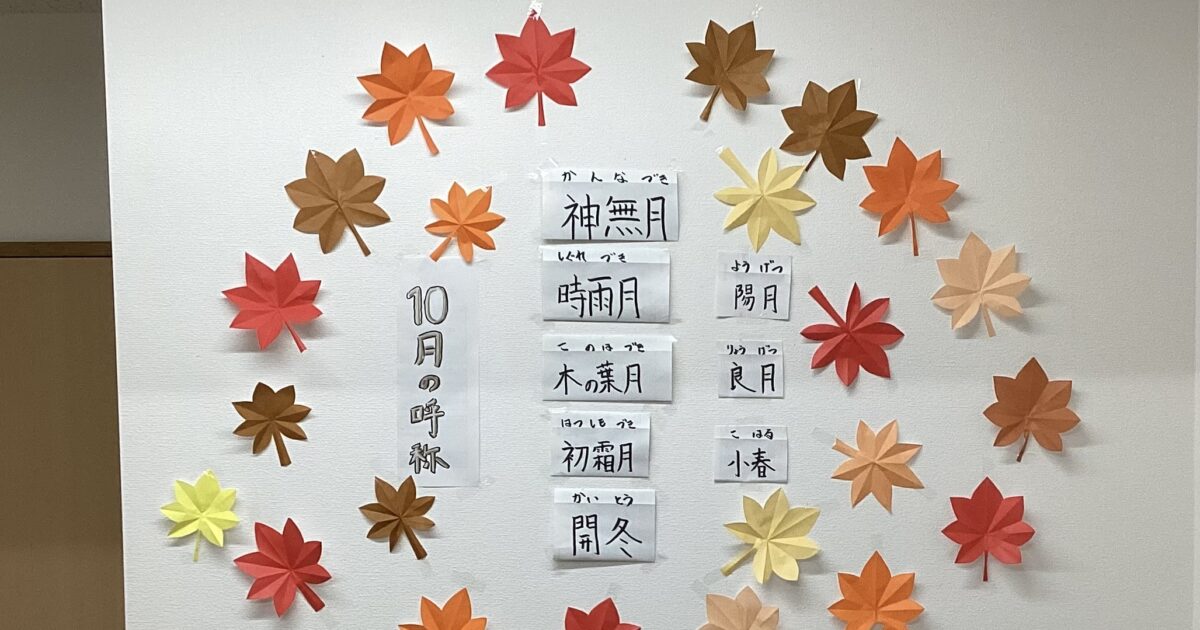 10月の呼称
かんなづき
神無月
しぐれづき
時雨月
このはづき
木の葉月
はつしもづき
初霜月
かいとう
開冬
ようげつ
陽月
りょうげつ
良月
こはる
小春